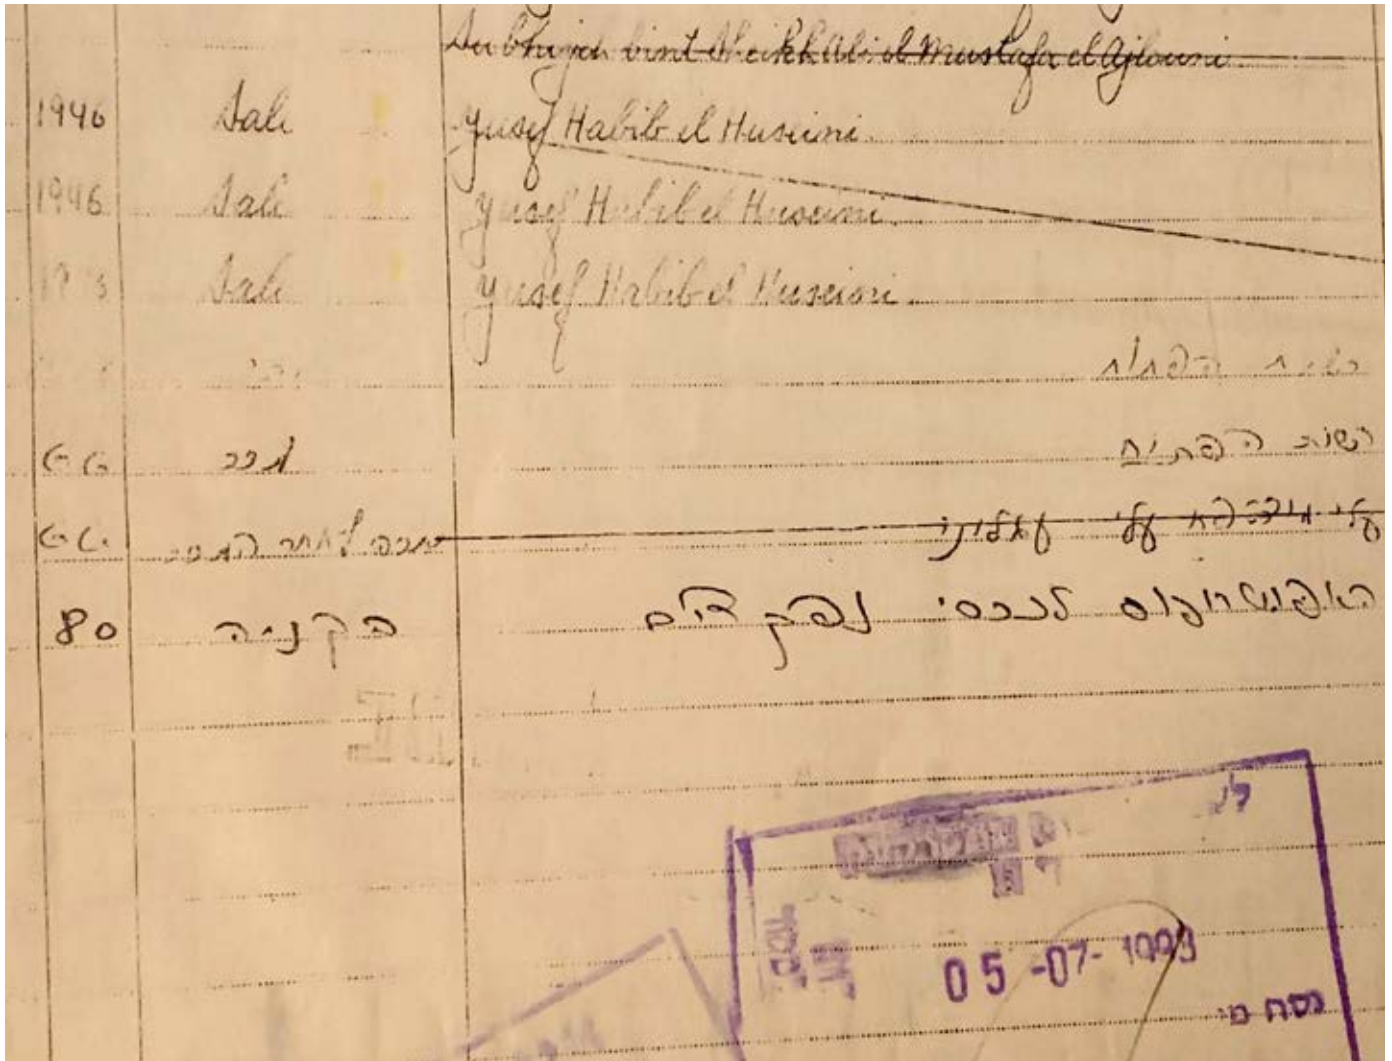 Subhiyeh bint Sheikh Ali el Mustafa el Ajlouni.
1946 Sale Yusef Habib el Huseini.
1946 Sale Yusef Habib el Huseini.
Sale Yusef Habib el Huseini.
רשות הפתוח
66 מכר רשות הפתוח
66 עלי עג'לוני
80 הקניה האפוטרופוס לנכסי נפקדים
05-07-1993
נסח מ